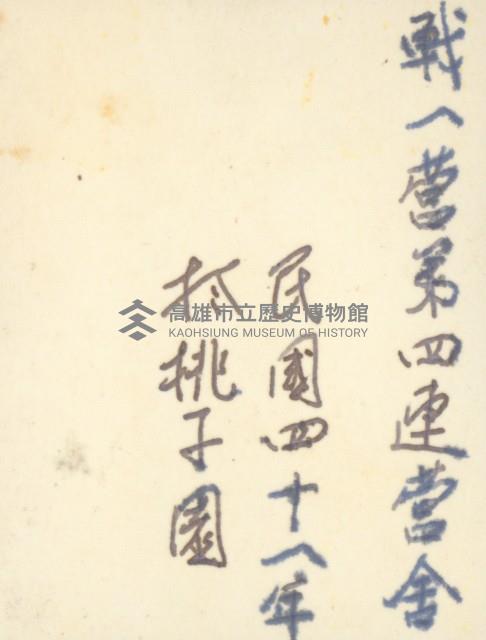 戰八營第四連營舍
民國四十八年
於桃子園
高雄市立歷史博物館
KAOHSIUNG MUSEUM OF HISTORY